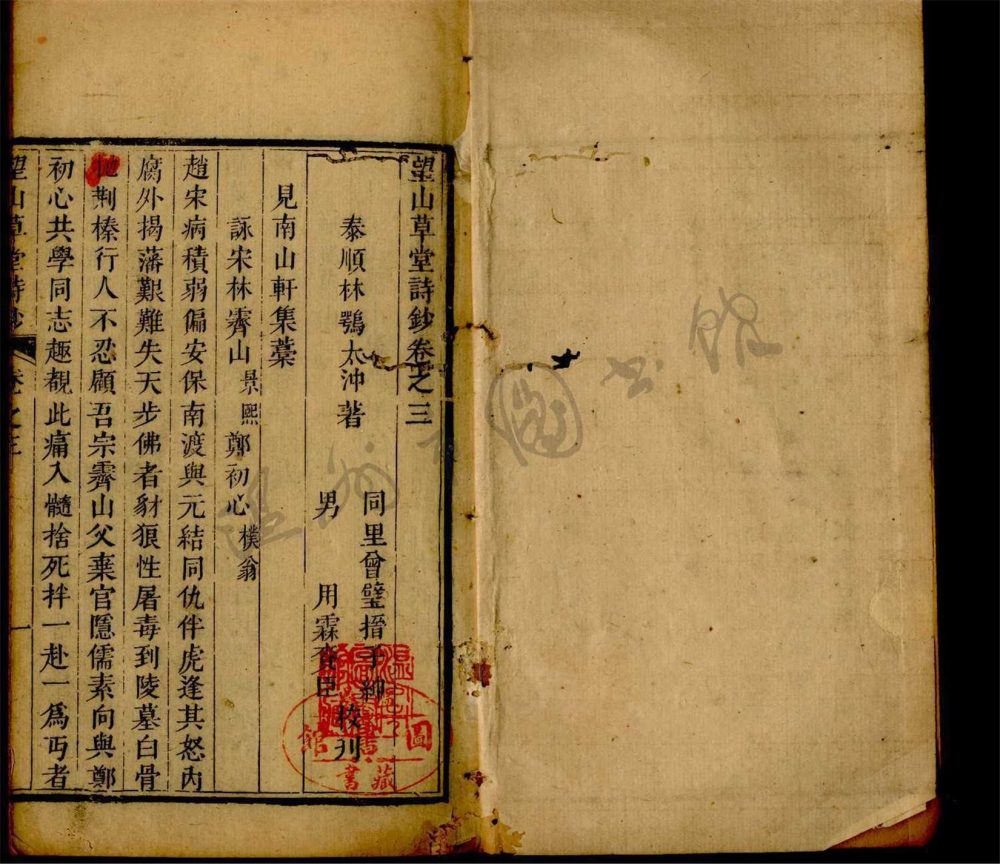 望山草堂詩鈔卷之三
泰順林鶚太沖著
同里曾璧搢子紳
男 用霖
校刋
見南山軒集藁
詠宋林霽山景熙鄭初心樸翁
趙宋病積弱偏安保南渡與元結同仇伴虎逢其怒內
腐外揭藩艱難失天步佛者豺狼性屠毒到陵墓白骨
荆榛行人不忍顧吾宗霽山父棄官隱儒素向與鄭
初心共學同志趣覩此痛入髓捨死拌一赴一爲丐者
望山草堂詩鈔 卷之三 一
圖
館
藏書
圖書館